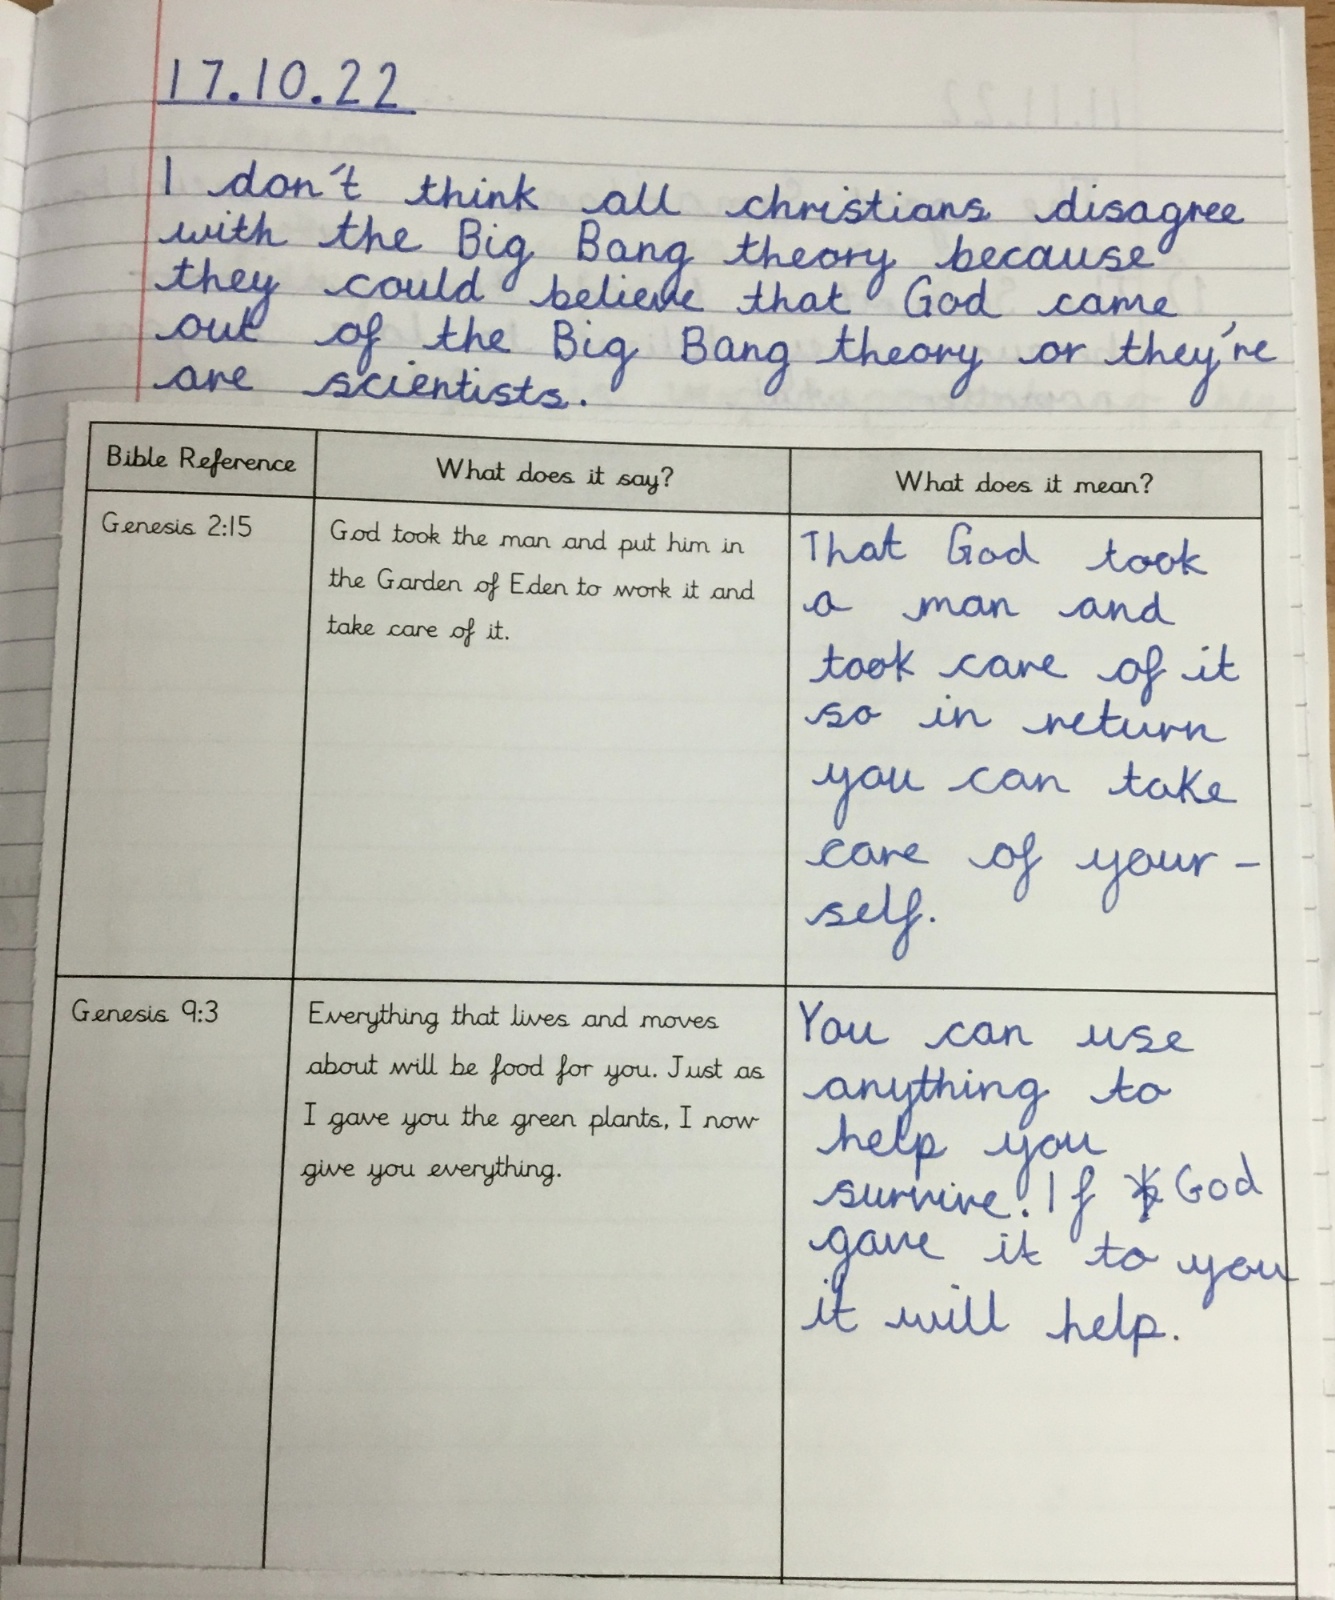 17.10.22
I don't think all christians disagree
with the Big Bang theory because
they could believe that God came
out of the Big Bang theory or they're
are scientists.
Bible Reference
What does it say?
What does it mean?
Genesis 2:15
God took the man and put him in
the Garden of Eden to work it and
take care of it.
That God took
a man and
took care of it
so in return
you can take
care of your-
self.
Genesis 9:3
Everything that lives and moves
about will be food for you. Just as
I gave you the green plants, I now
give you everything.
You can use
anything to
help you
survive. If God
gave it to you
it will help.